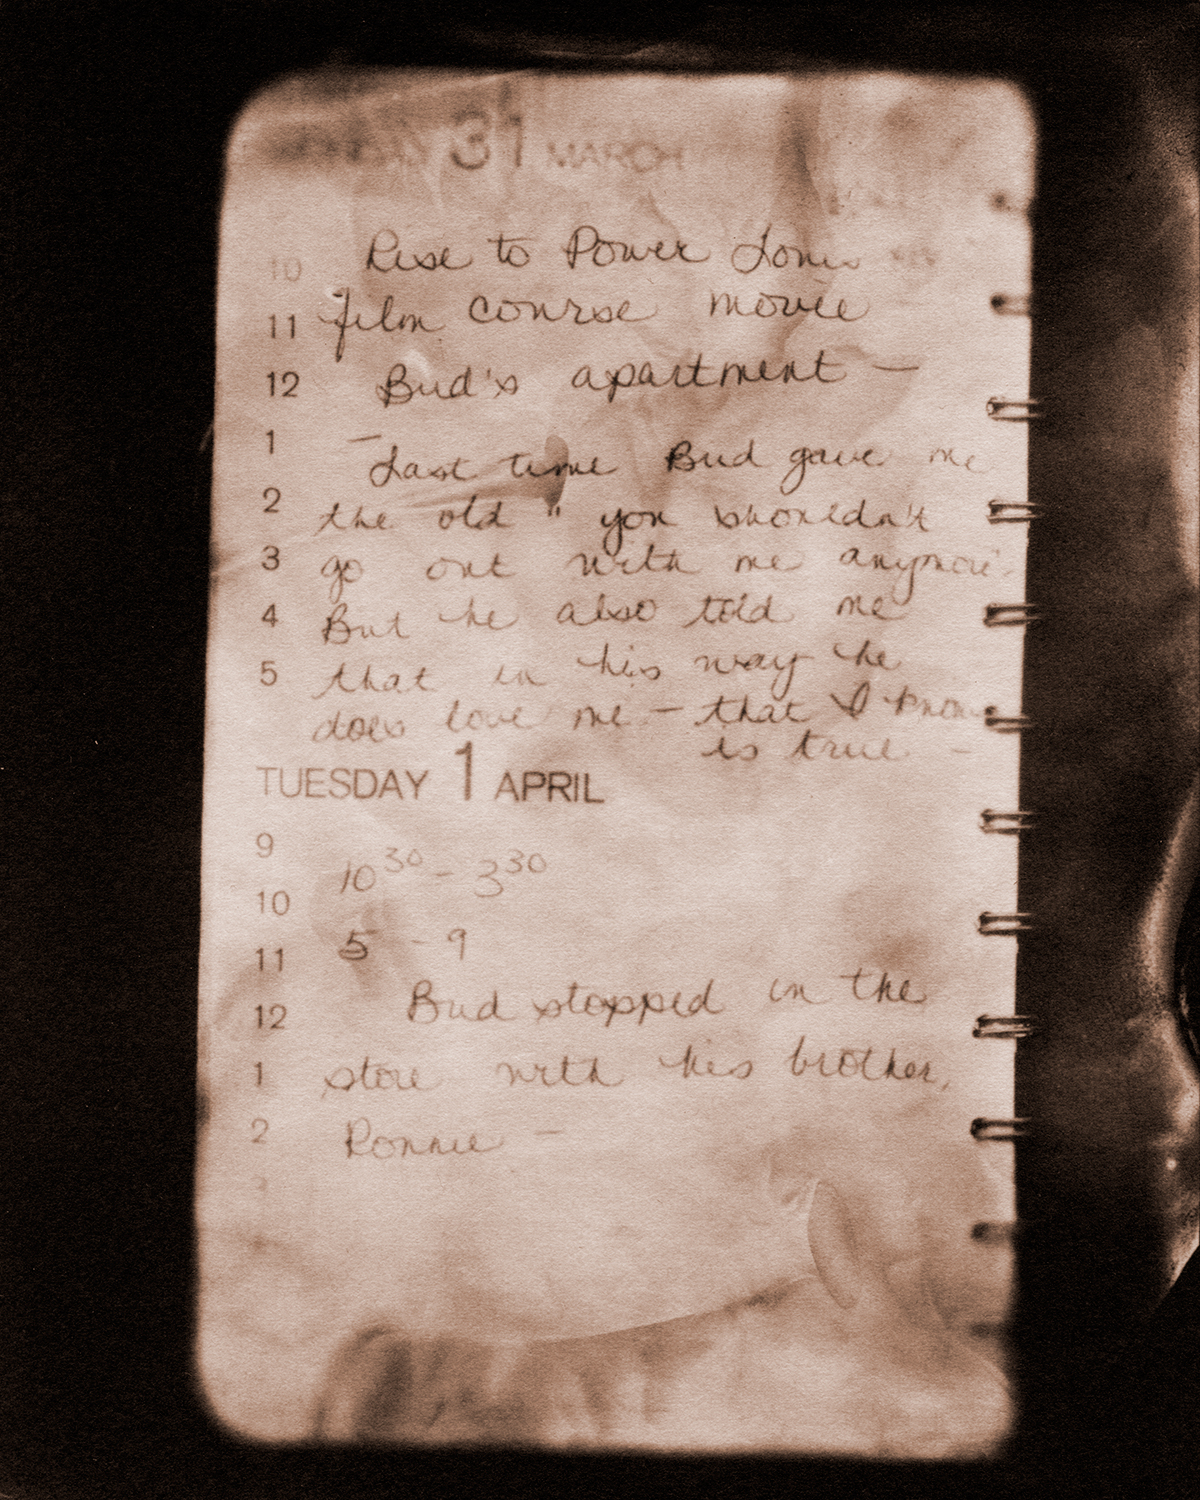 31 MARCH
10 Rise to Power Louis
11 film course movie
12 Bud's apartment —
1 — Last time Bud gave me
2 the old " you shouldn't
3 go out with me anymore.
4 But he also told me
5 that in his way he
does love me — that I know
is true —
TUESDAY 1 APRIL
9
10 30 - 3 30
10
11 5 - 9
12 Bud stopped in the
1 store with his brother,
2 Ronnie —
3